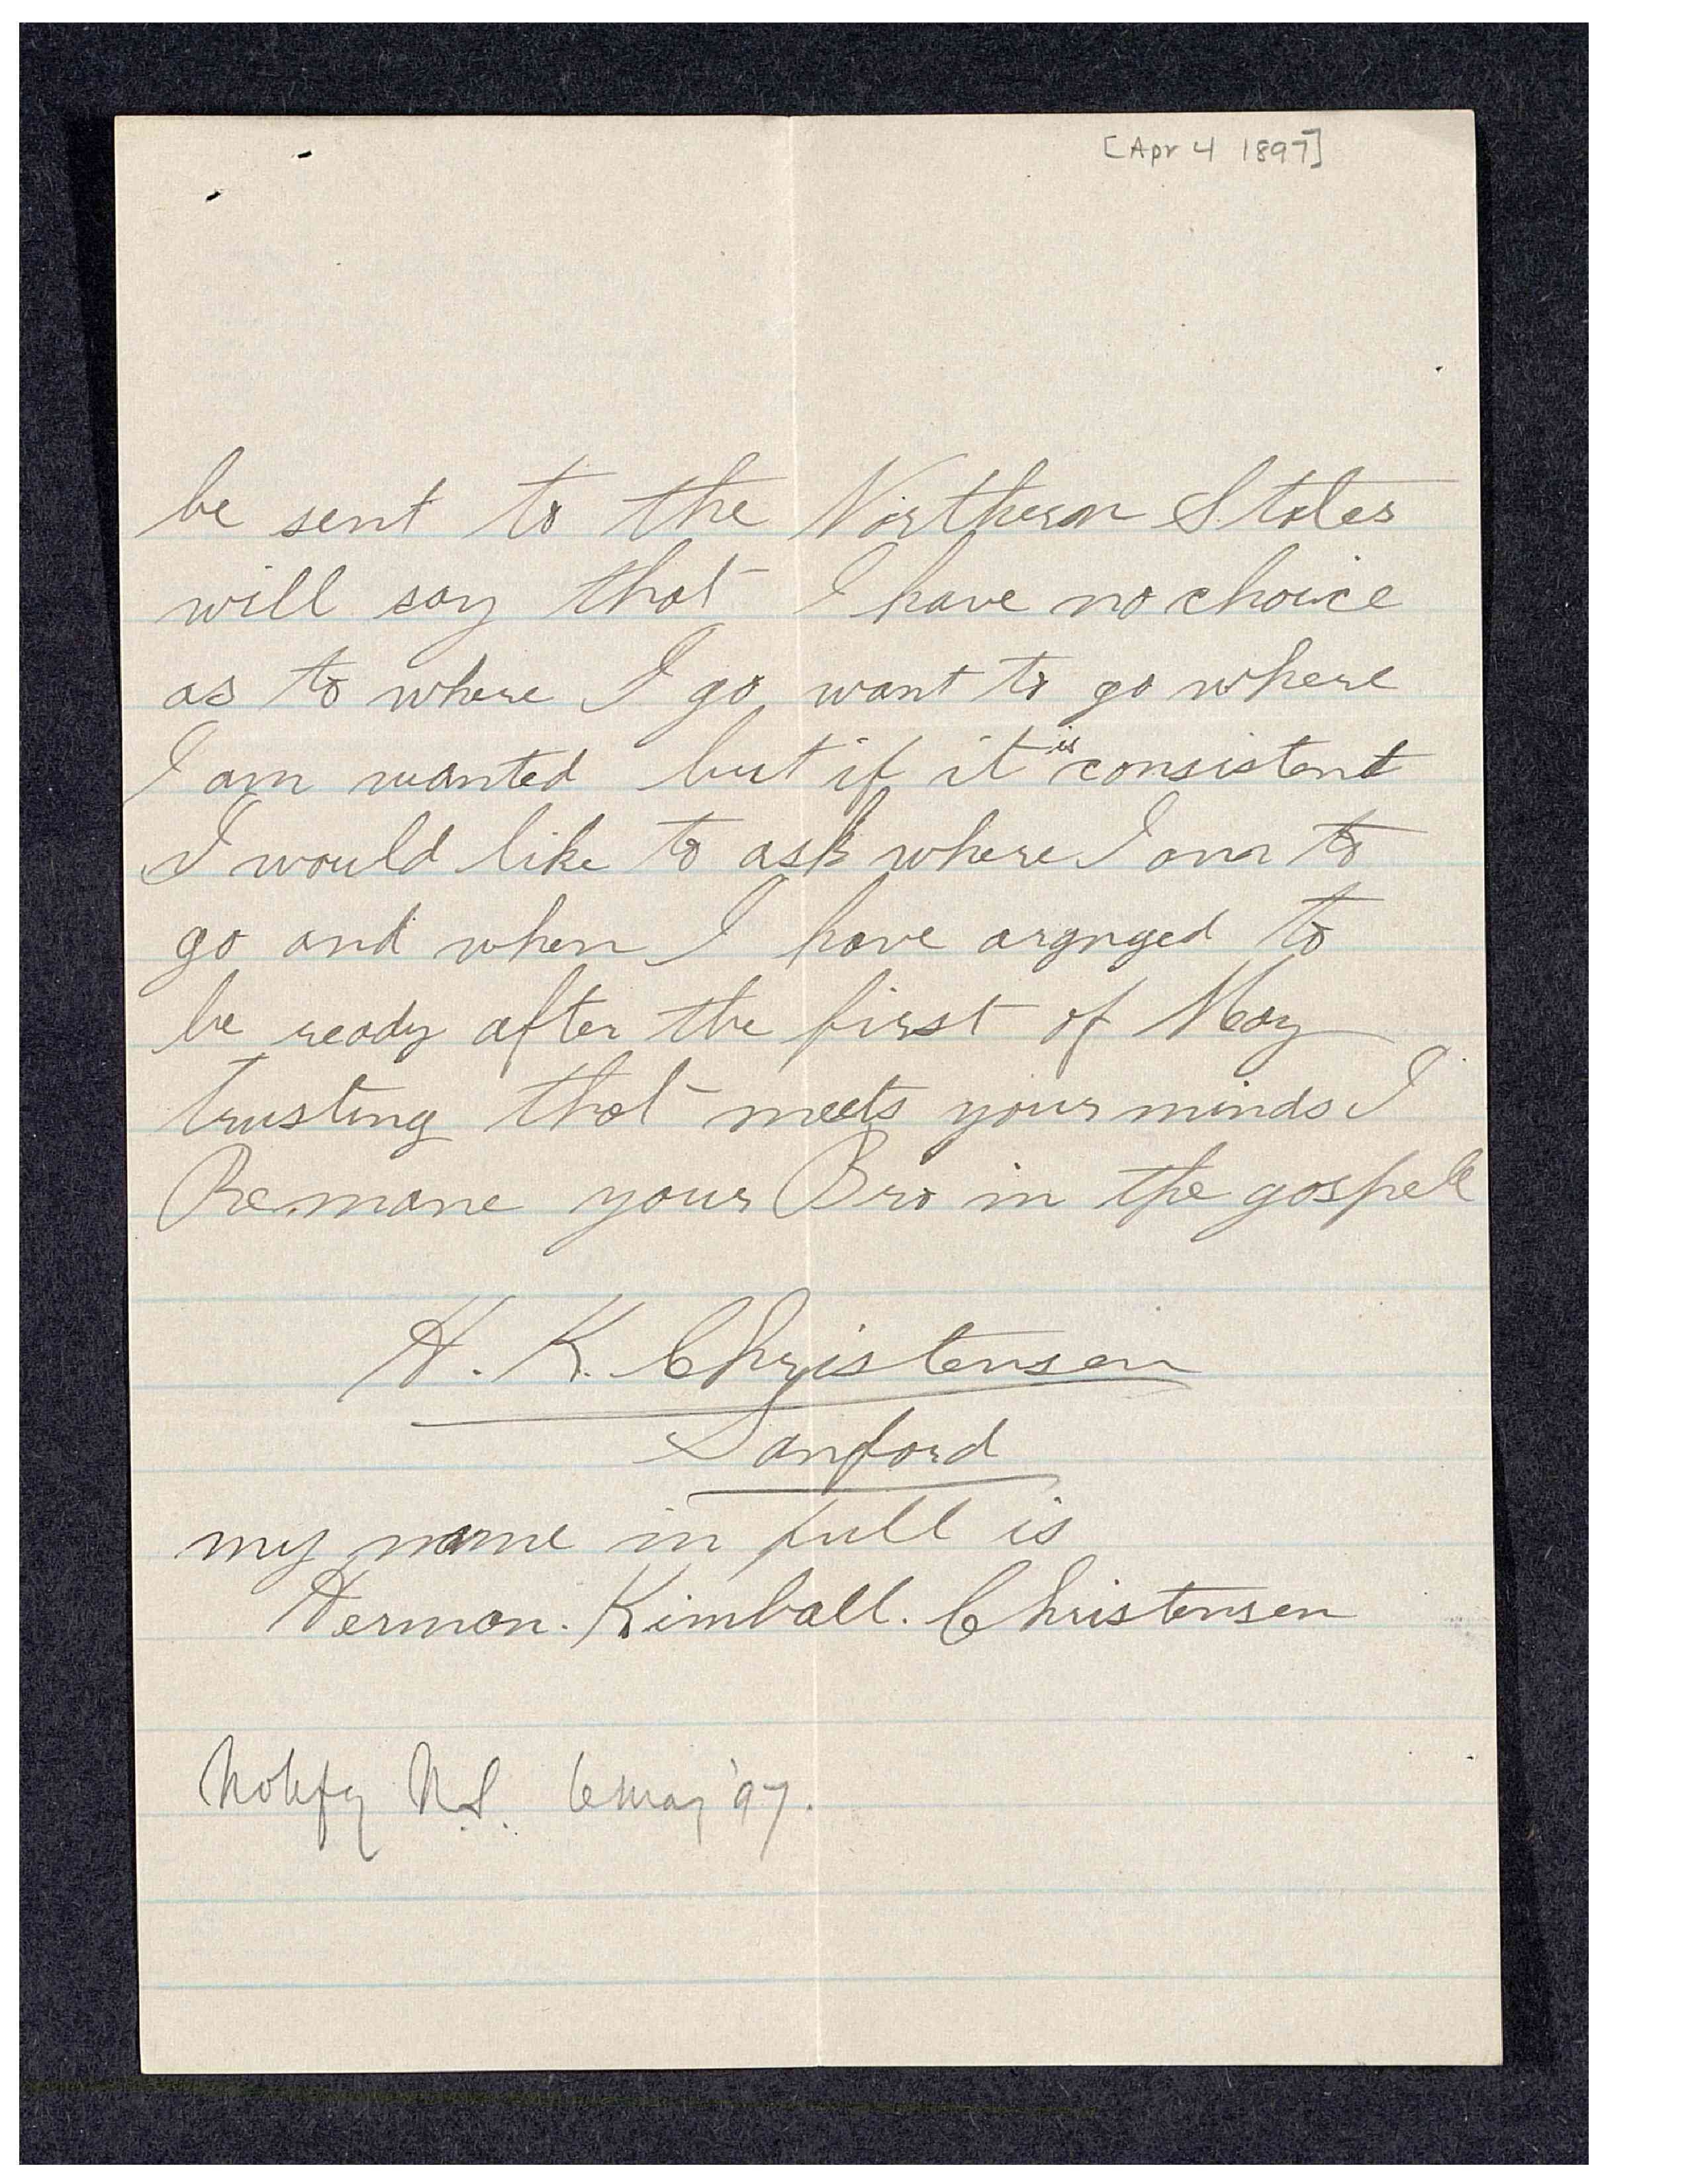 [Apr 4 1897]
be sent to the Northern States
will say that I have no choice
as to where I go want to go where
I am wanted but if it is consistent
I would like to ask where I am to
go and when I have argnged to
be ready after the first of May
trusting that meets your minds I
Remane your Bro in the gospell
H. K. Christensen
Sanford
my name in full is
Hermon. Kimball. Christensen
Notify N.S. 6 May '97.